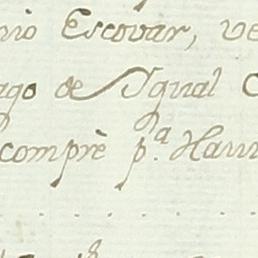 nio Escovar, ve
ago de Ygual C
comprè p.ª Haun